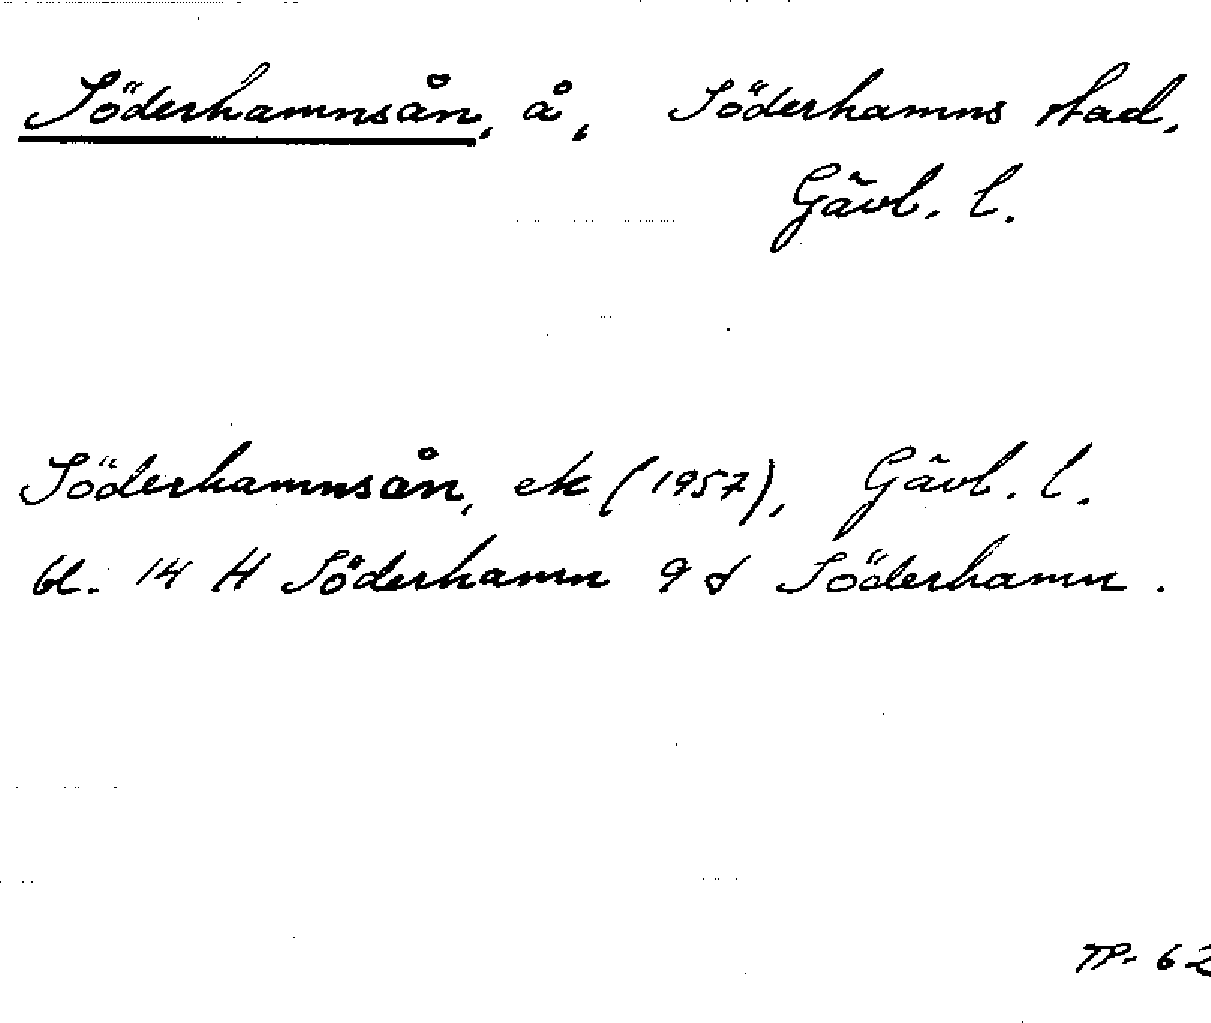 Söderhamnsån, å, Söderhamns stad,
Gävl. l.
Söderhamnsån, ek (1957), Gävl. l.
bl. 14 H Söderhamn 9 d Söderhamn.
TP- 62